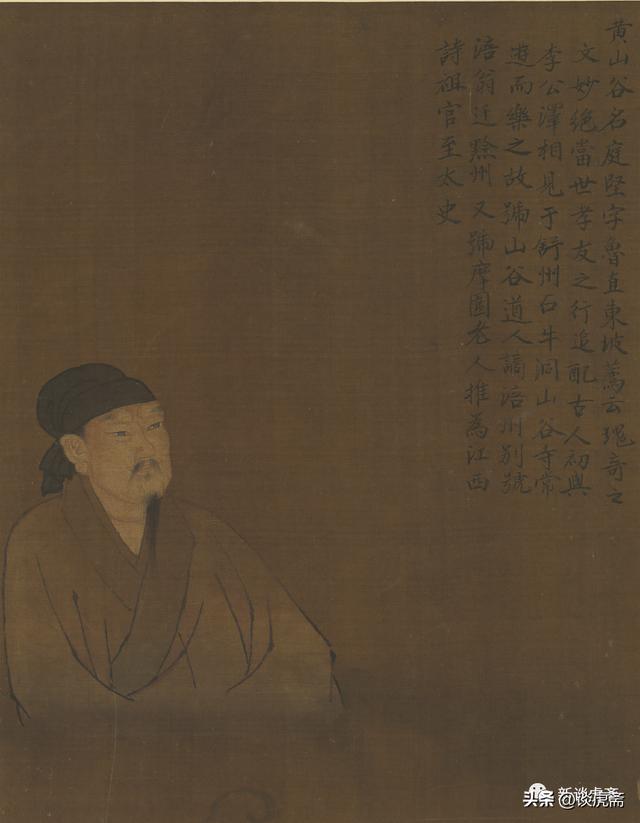 黄山谷名庭堅字魯直東坡薦云瑰奇之
文妙絶當世孝友之行追配古人初與
李公澤相見于舒州石牛洞山谷寺常
遊而樂之故號山谷道人謫涪州别號
涪翁迁黔州又號摩圍老人推為江西
詩祖官至太史
新谈虎斋
头条 @谈虎斋